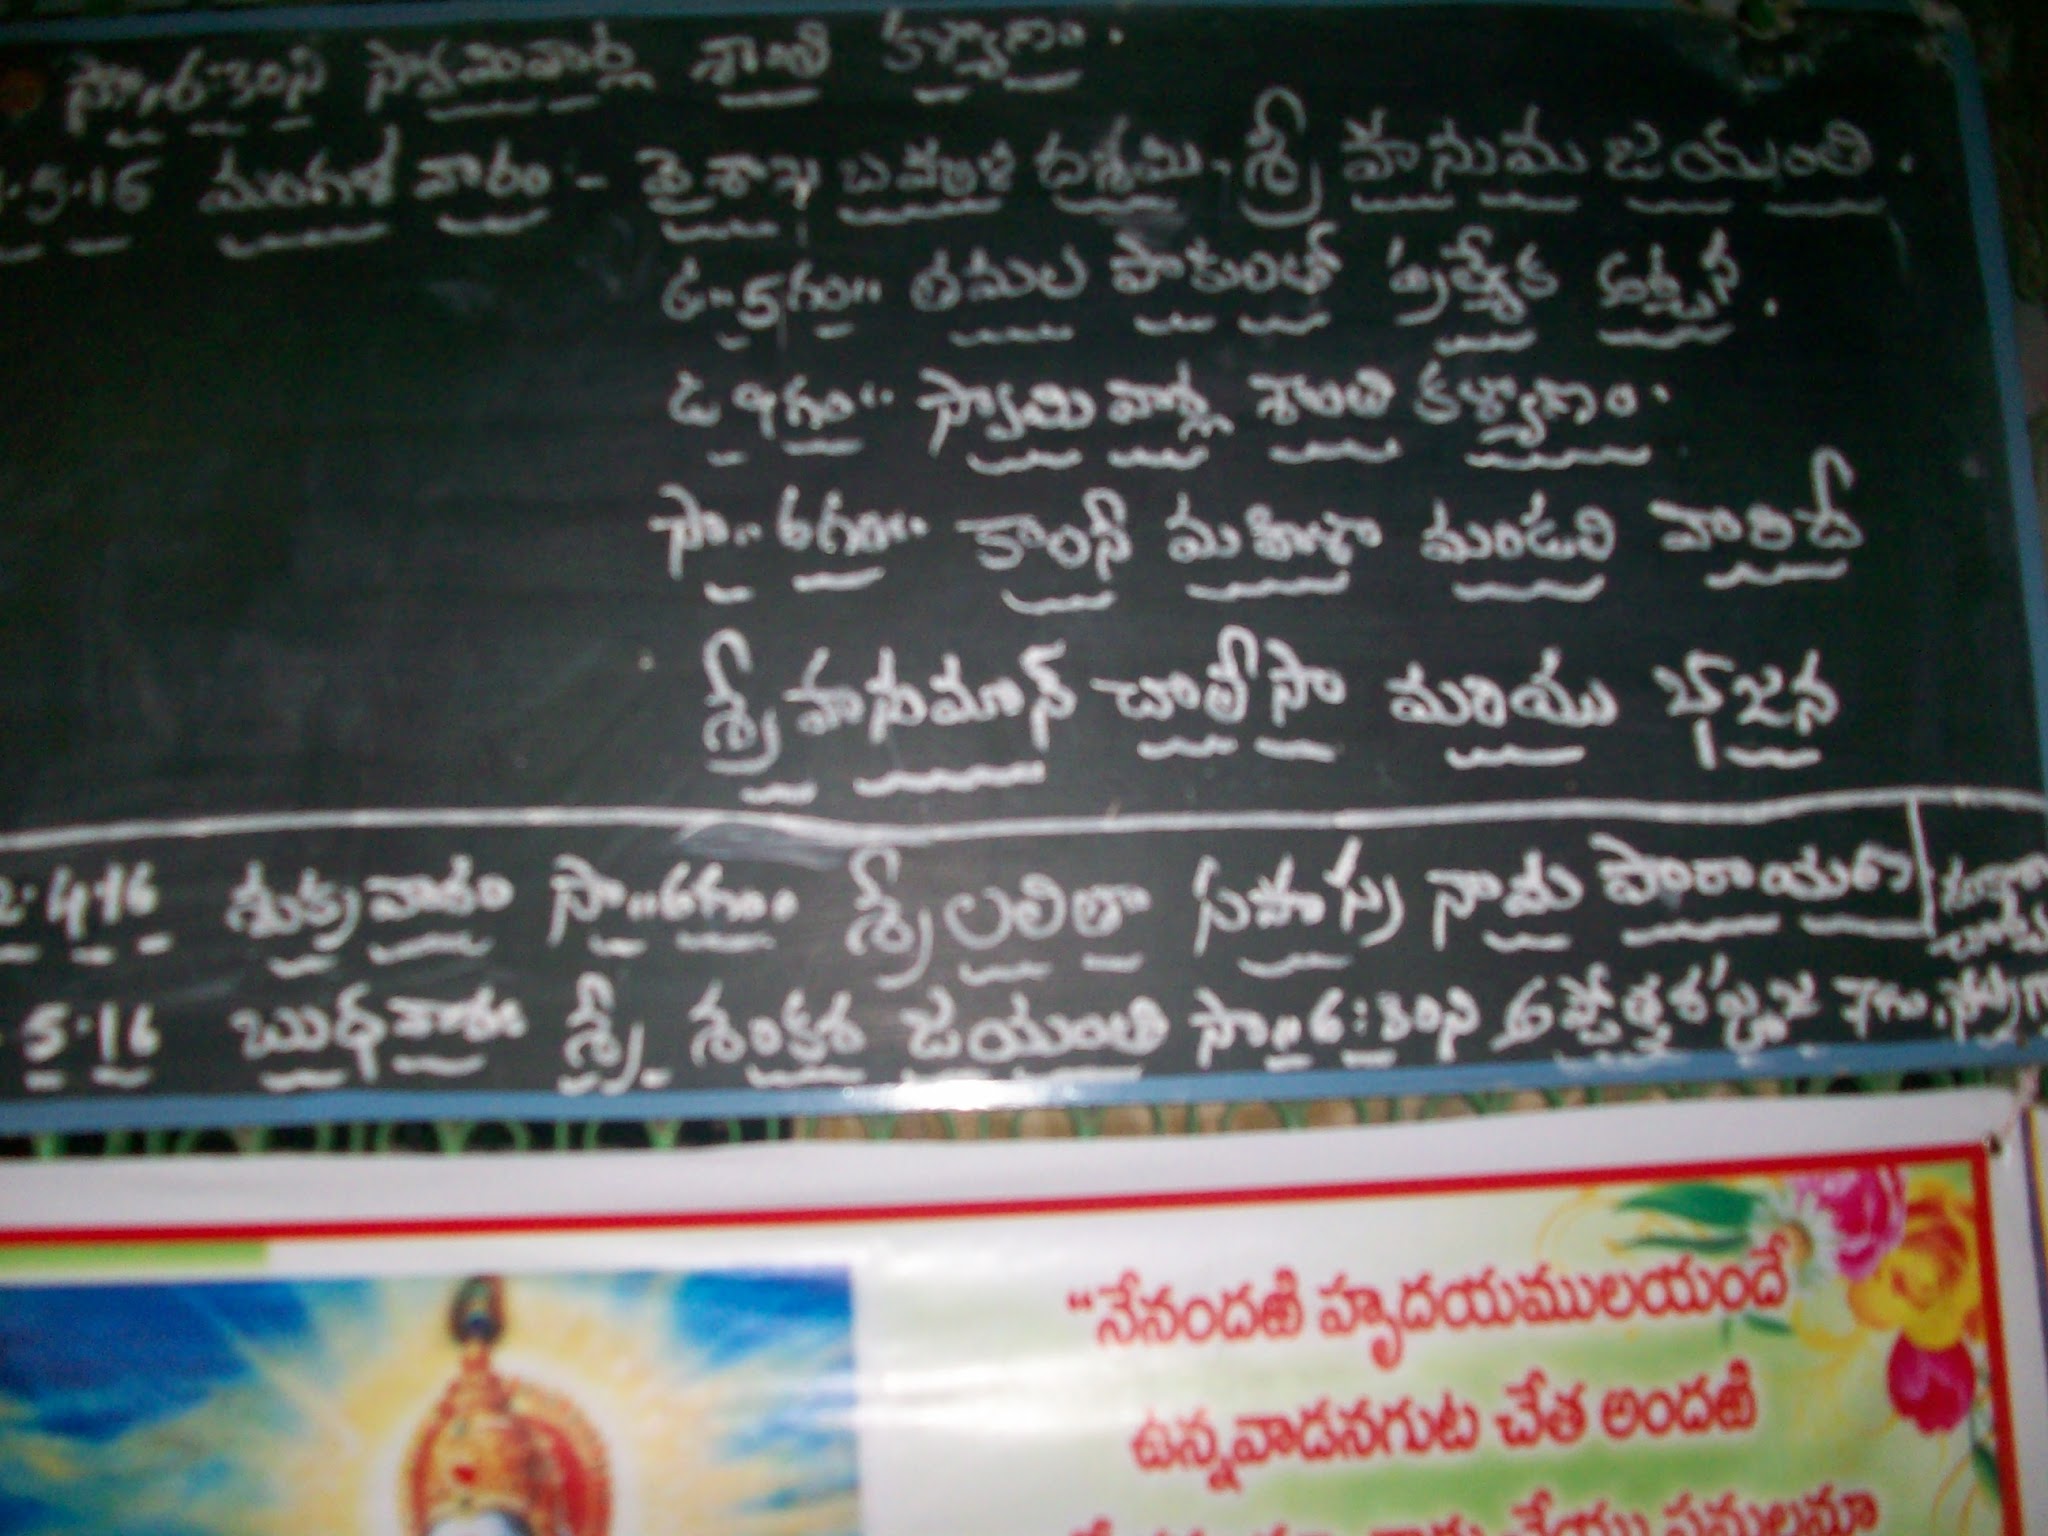 సా॥6:30ని స్వామివార్ల శాంతి కళ్యాణం.
5.16 మంగళ వారం - వైశాఖ బహుళ దశమి - శ్రీ హనుమ జయంతి.
ఉ॥ 5గం॥ తమల పాకులతో ప్రత్యేక అర్చన.
ఉ 9గం॥ స్వామి వార్ల శాంతి కళ్యాణం.
సా॥ 6గం॥ కాంస్ మహిళా మండలి వారిచే
శ్రీ హనుమాన్ చాలీసా మరియు భజన
2.4.16 శుక్రవారం సా॥6గం శ్రీ లలితా సహస్ర నామ పారాయణ
5.16 బుధవారం శ్రీ శంకర జయంతి సా॥6:30ని అష్టోత్తర పూజ 7గం.
"నేనందఱి హృదయములయందే
ఉన్నవాడనగుట చేత అందఱి